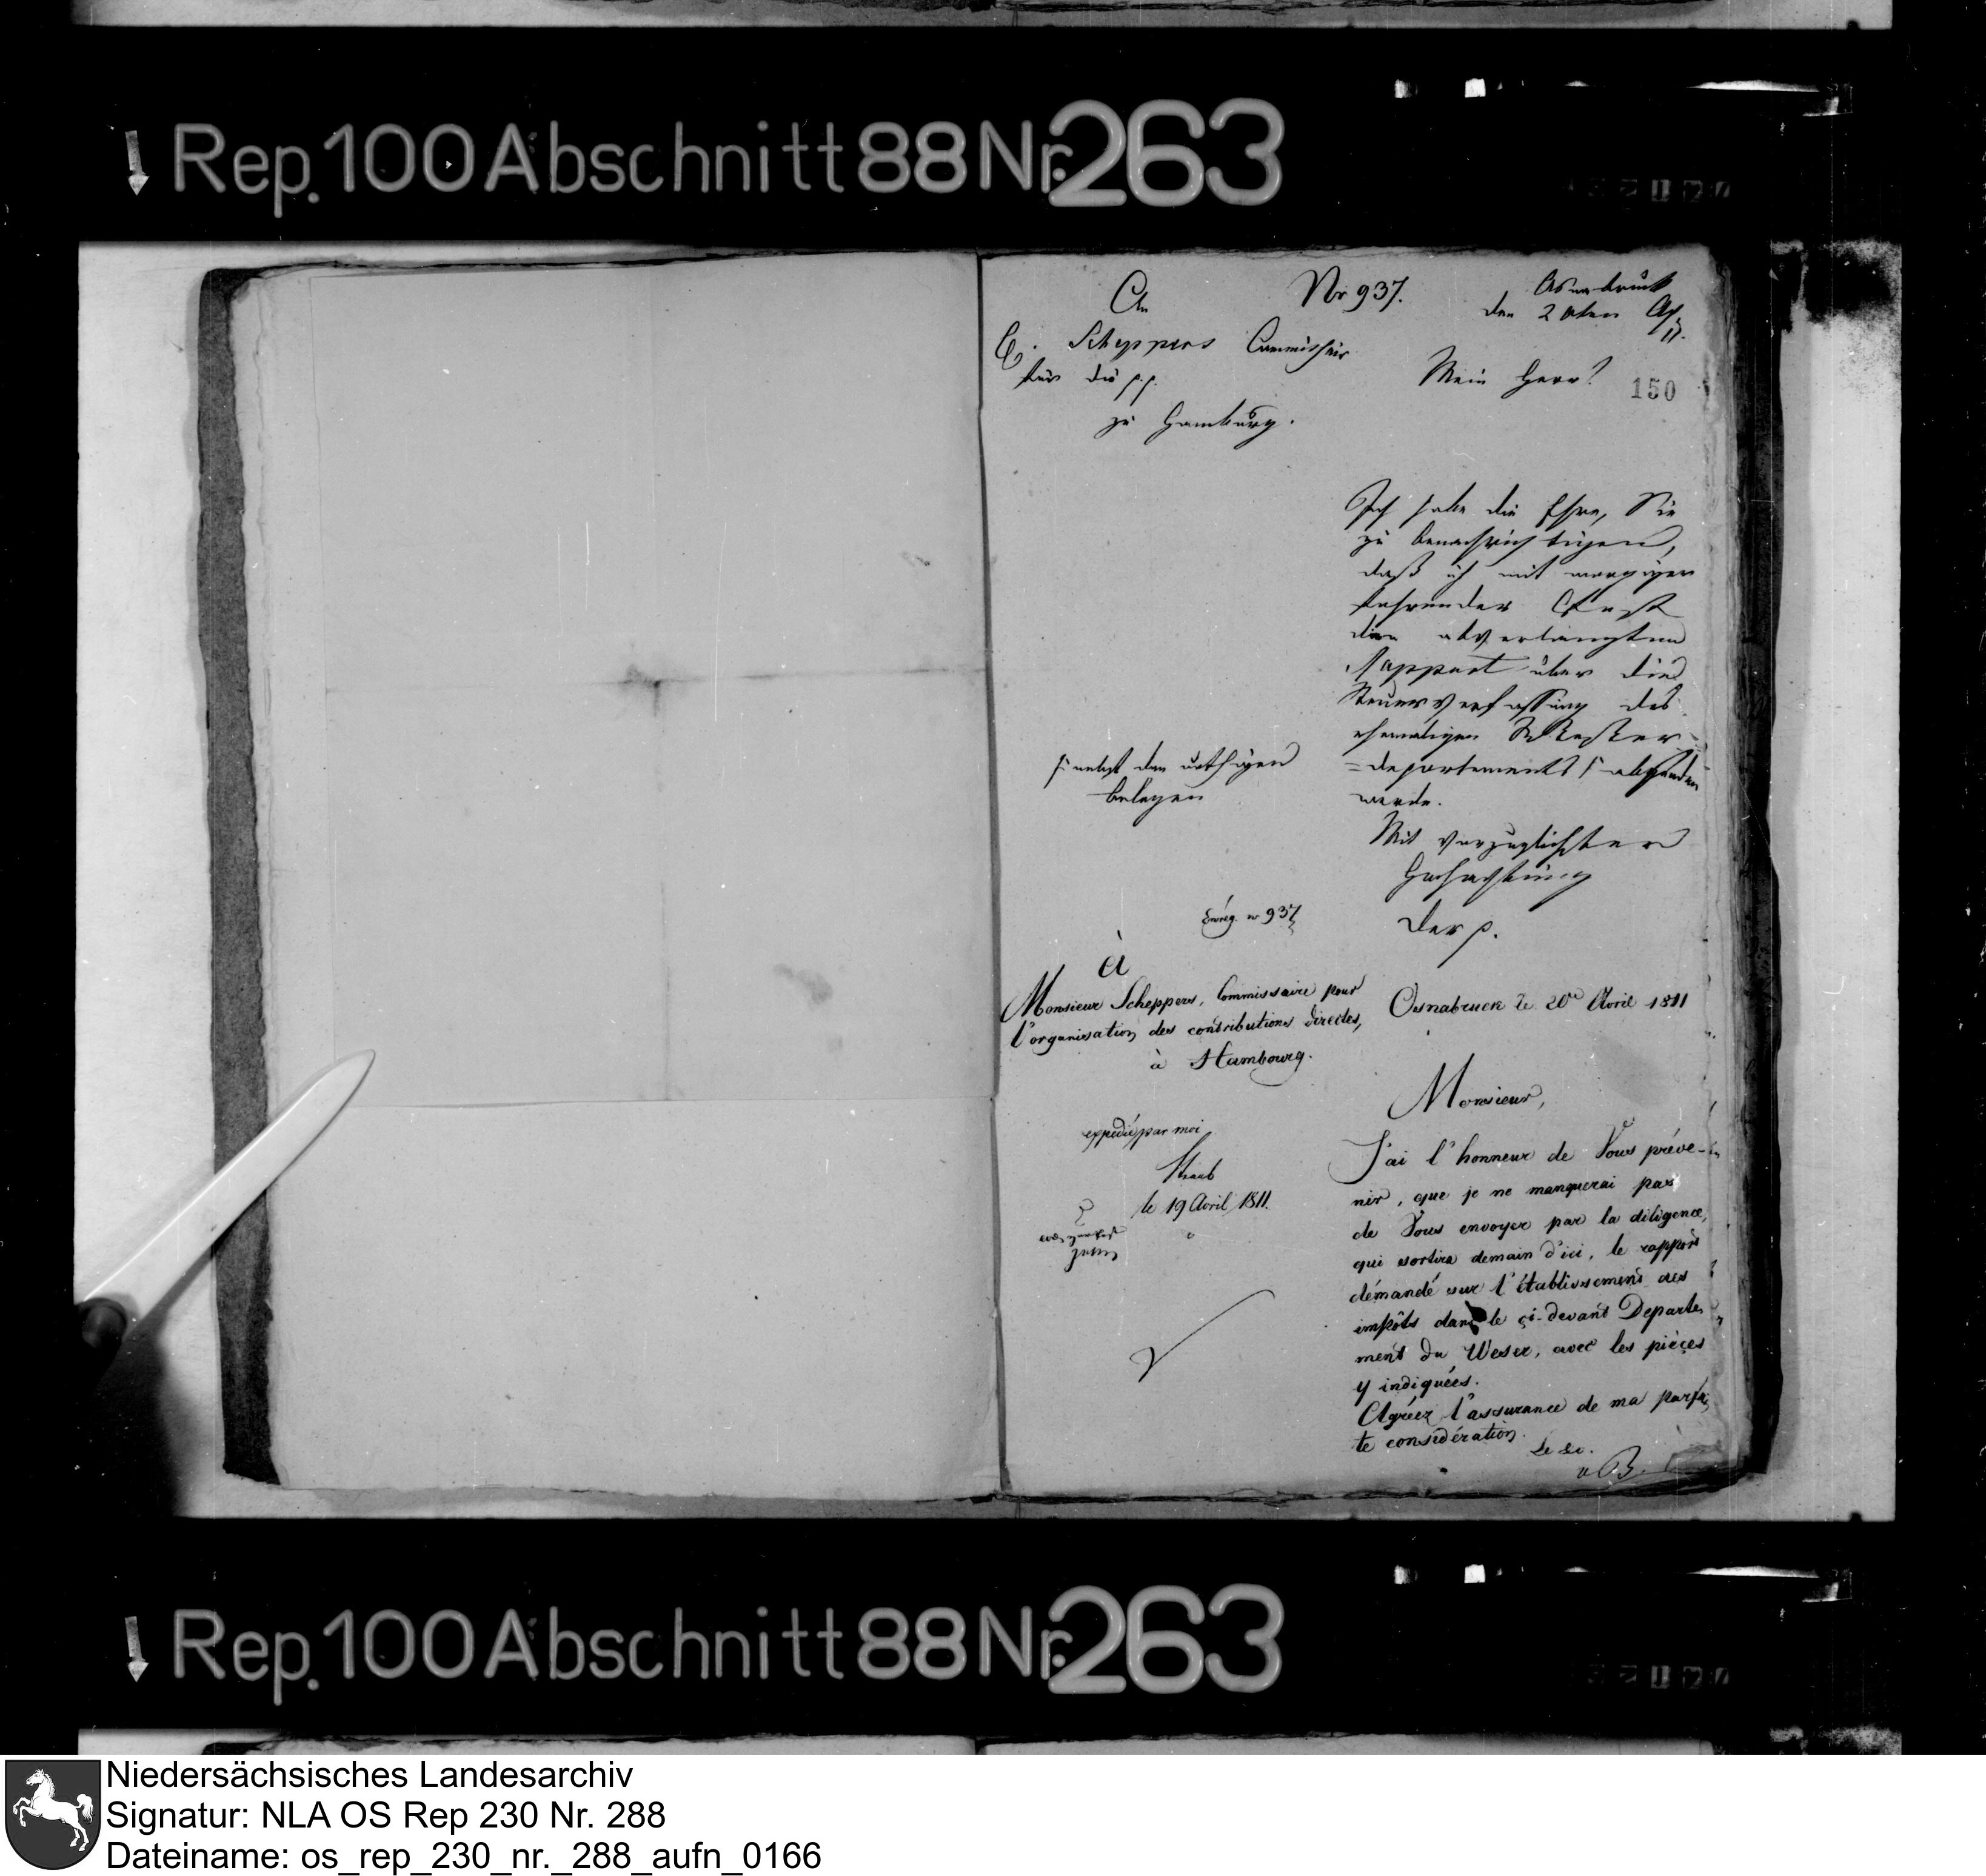 Rep. 100 Abschnitt 88 Nr. 263
An
Nr 937.
Osnabrück
den 20ten Ap.
H. Scheppers Commissair
für die p.p.
zu Hamburg.
Mein Herr!
150
Ich habe die Ehre, Sie
zu benachrichtigen,
daß ich mit morgiger
fahrender Post
den abverlangten
Rapport über die
Steuerverfassung des
ehemaligen Weser-
=departements abgesenden
werde.
nebst den nöthigen
Belegen
Mit vorzüglichster
Hochachtung
Der p.
Enrég. nr 937
à
Monsieur Scheppers, Commissaire pour
l'organisation des contributions directes,
à Hambourg.
Osnabruck le 20e Avril 1811
Monsieur,
expédié par moi
Staab
le 19 Avril 1811.
J'ai l'honneur de Vous préve-
nir, que je ne manquerai pas
de Vous envoyer par la diligence,
qui sortira demain d'ici, le rapport
démandé sur l'établissement des
impôts dans le çi-devant Departe
ment du Weser, avec les pièçes
y indiquées.
Agréez l'assurance de ma parfai
te considération.
Le &c.
v B.
Rep. 100 Abschnitt 88 Nr. 263
Niedersächsisches Landesarchiv
Signatur: NLA OS Rep 230 Nr. 288
Dateiname: os_rep_230_nr._288_aufn_0166